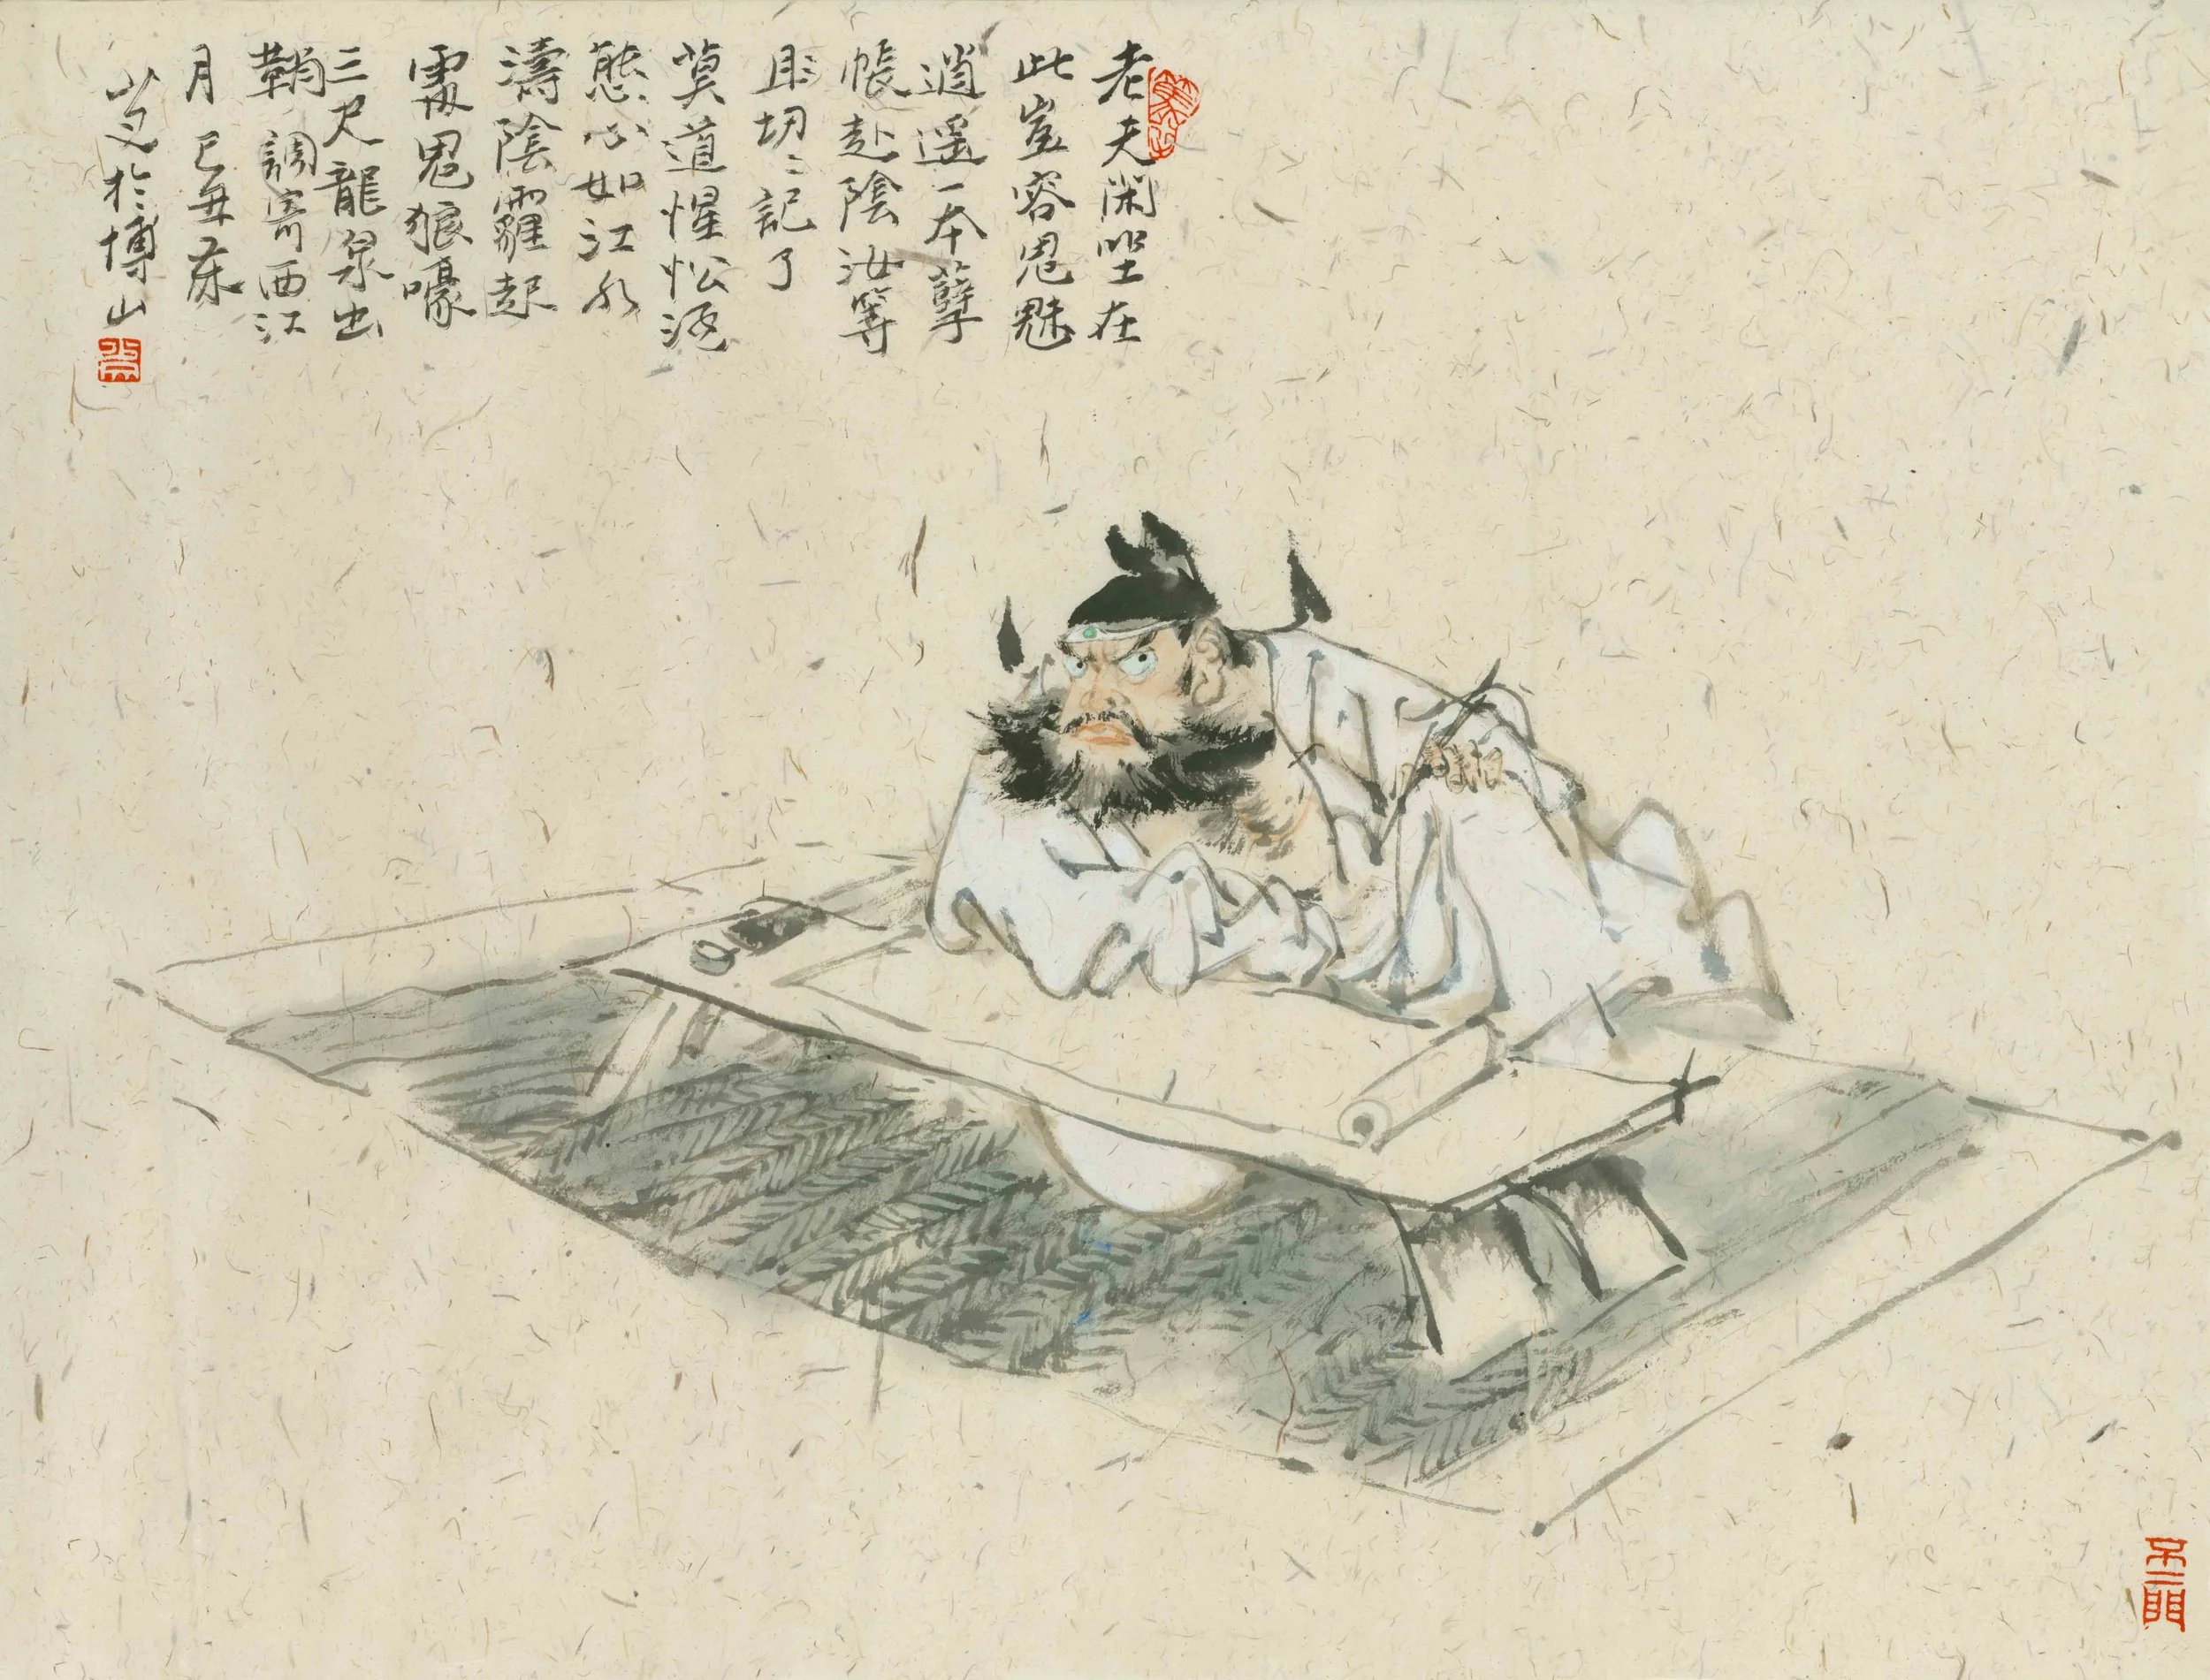 老夫閑坐在
此豈容鬼魅
逍遥一本孽
帳赴陰汝等
且切々記了
莫道惺忪酒
態心如江水
濤陰霾起
震鬼狼嚎
三尺龍泉出
鞘調寄西江
月己丑荷
於博山